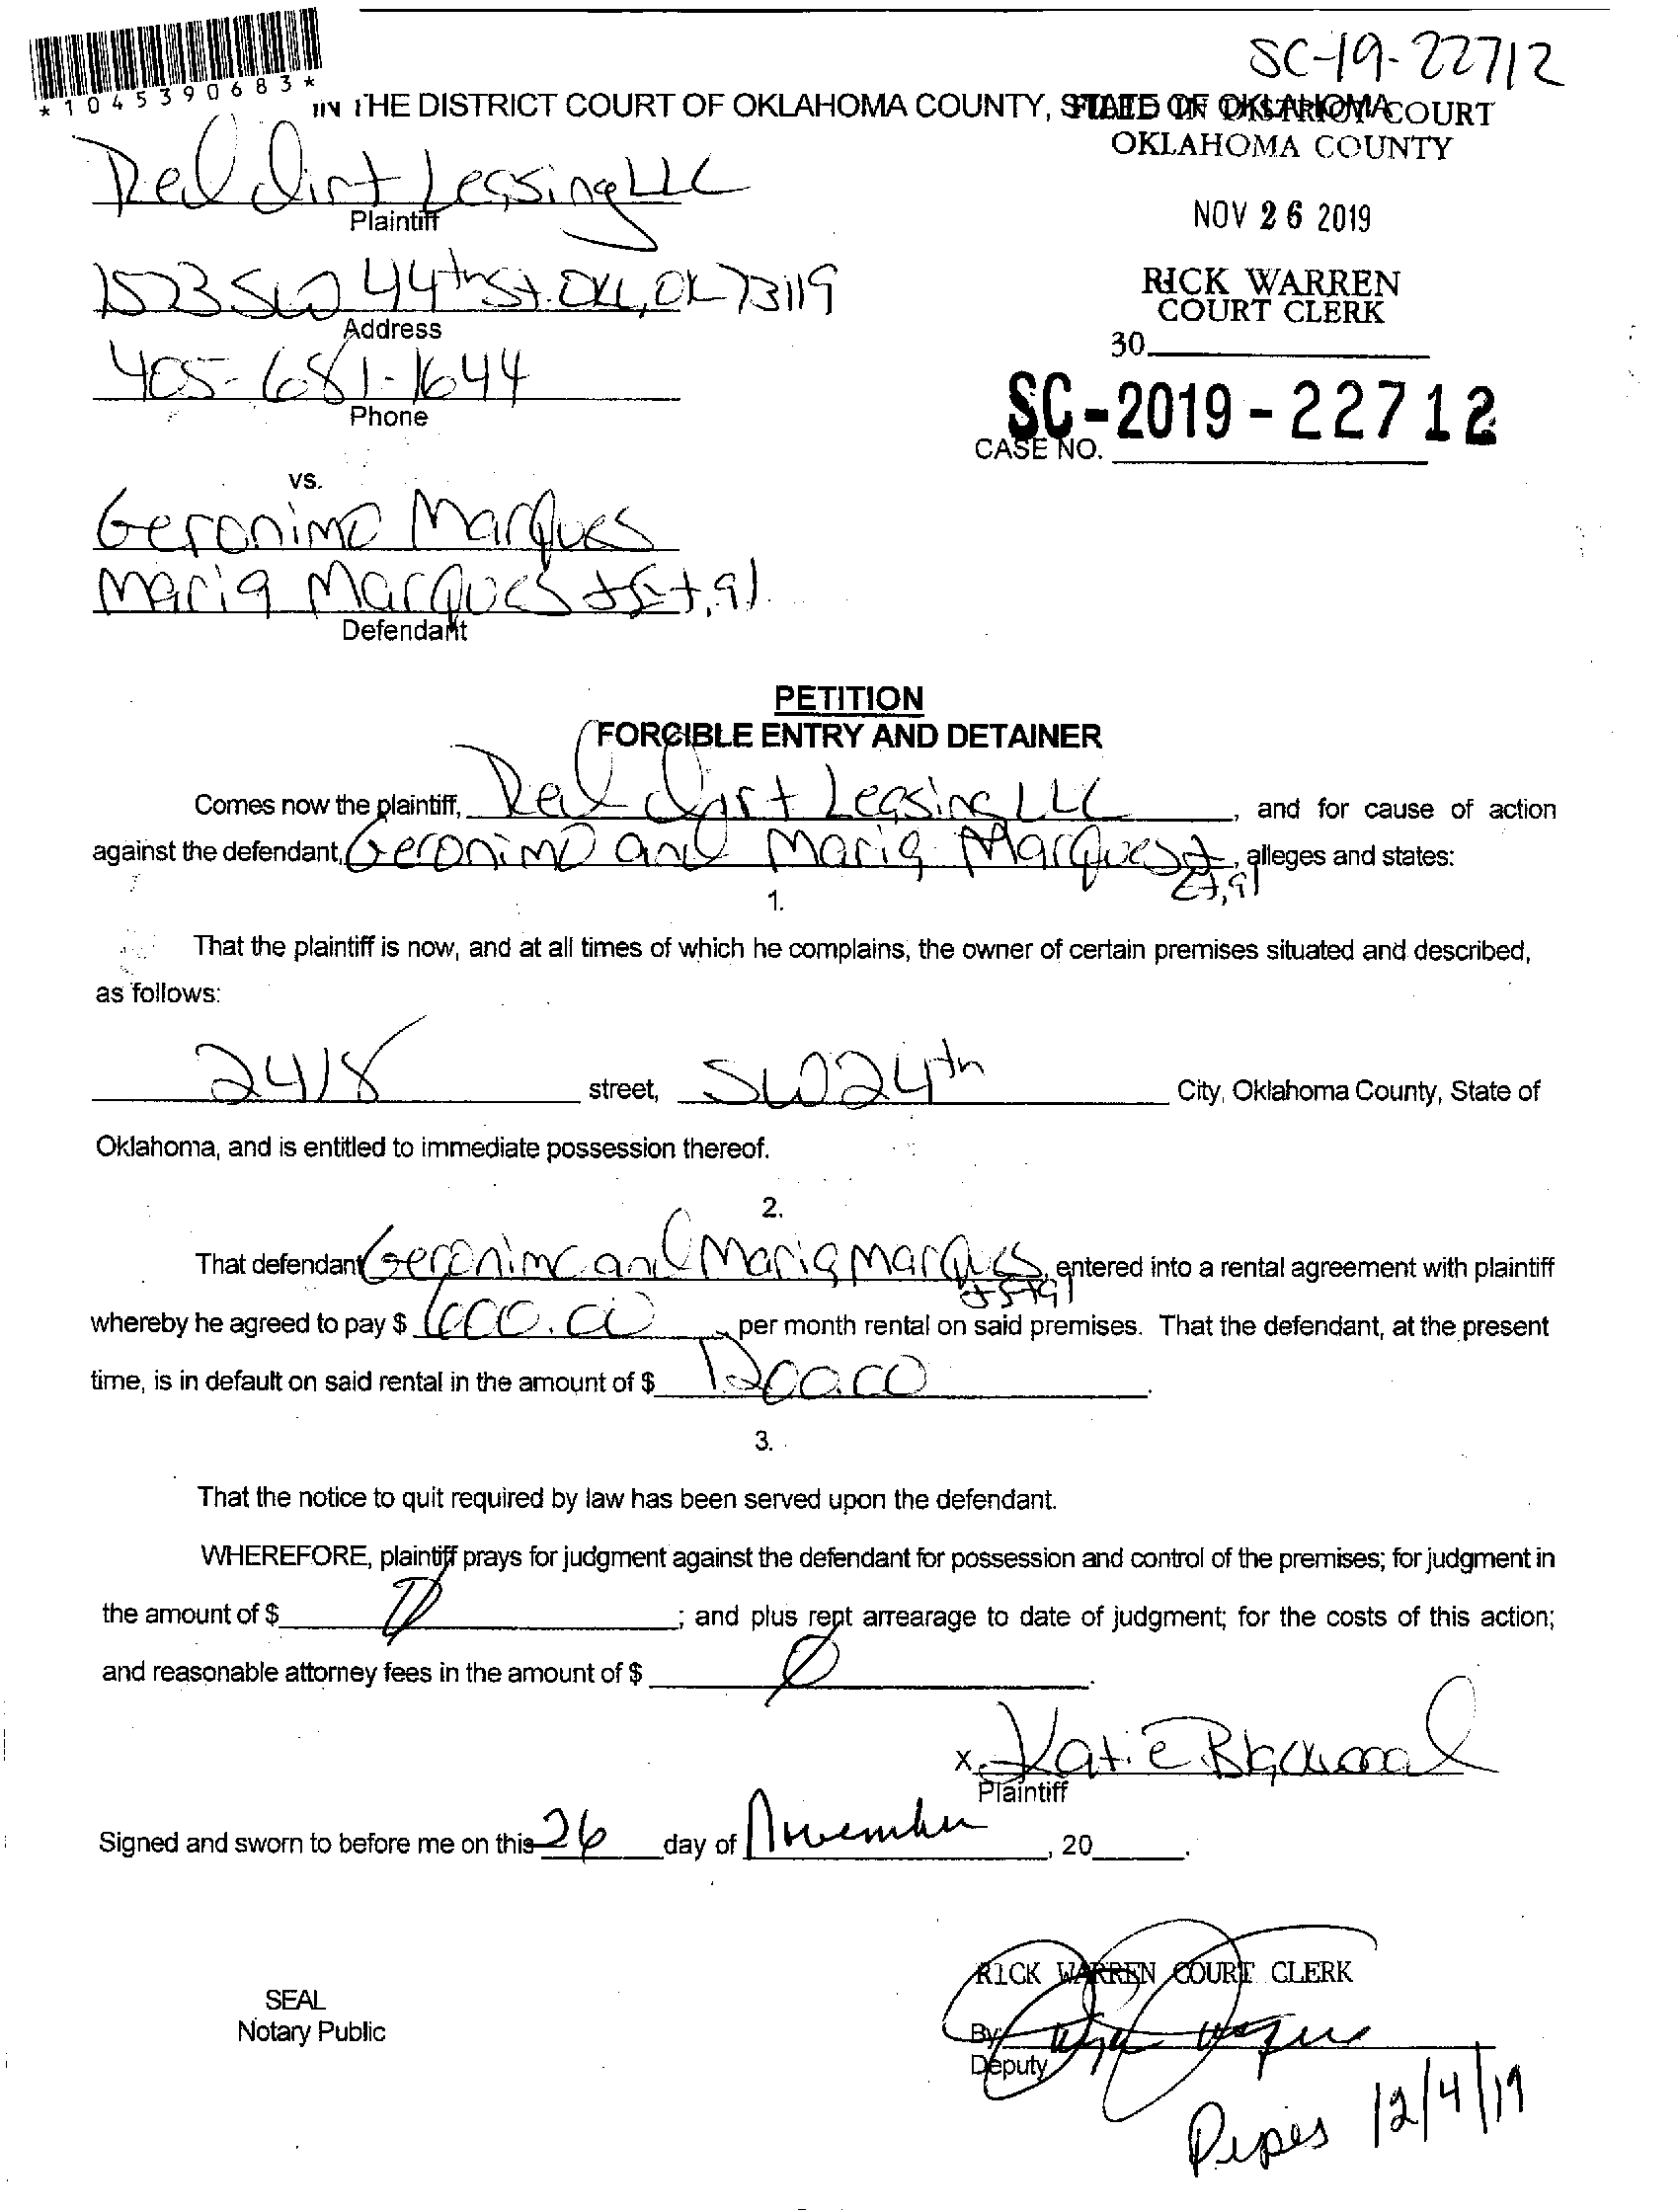 SC-19-22712
*1045390683*
IN THE DISTRICT COURT OF OKLAHOMA COUNTY, STATE OF OKLAHOMA
FILED IN DISTRICT COURT
OKLAHOMA COUNTY
Red dirt Leasing LLC
Plaintiff
NOV 26 2019
1523 SW 44th St. OKC, OK 73119
Address
RICK WARREN
COURT CLERK
405-681-1644
Phone
30
SC-2019-22712
CASE NO.
vs.
Geronimo Marques
Maria Marques + Et, al
Defendant
PETITION
FORCIBLE ENTRY AND DETAINER
Comes now the plaintiff, Red dirt Leasing LLC, and for cause of action
against the defendant, Geronimo and Maria Marques + Et, al, alleges and states:
1.
That the plaintiff is now, and at all times of which he complains, the owner of certain premises situated and described,
as follows:
2418 street, SW 24th City, Oklahoma County, State of
Oklahoma, and is entitled to immediate possession thereof.
2.
That defendant Geronimo and Maria Marques, entered into a rental agreement with plaintiff
whereby he agreed to pay $ per month rental on said premises. That the defendant, at the present
time, is in default on said rental in the amount of $ 1200.00.
3.
That the notice to quit required by law has been served upon the defendant.
WHEREFORE, plaintiff prays for judgment against the defendant for possession and control of the premises; for judgment in
the amount of $ ; and plus rent arrearage to date of judgment; for the costs of this action;
and reasonable attorney fees in the amount of $ .
x Katie Blackwood
Plaintiff
Signed and sworn to before me on this 26 day of November, 20 .
RICK WARREN COURT CLERK
SEAL
Notary Public
By
Deputy
Pipes 12/4/19